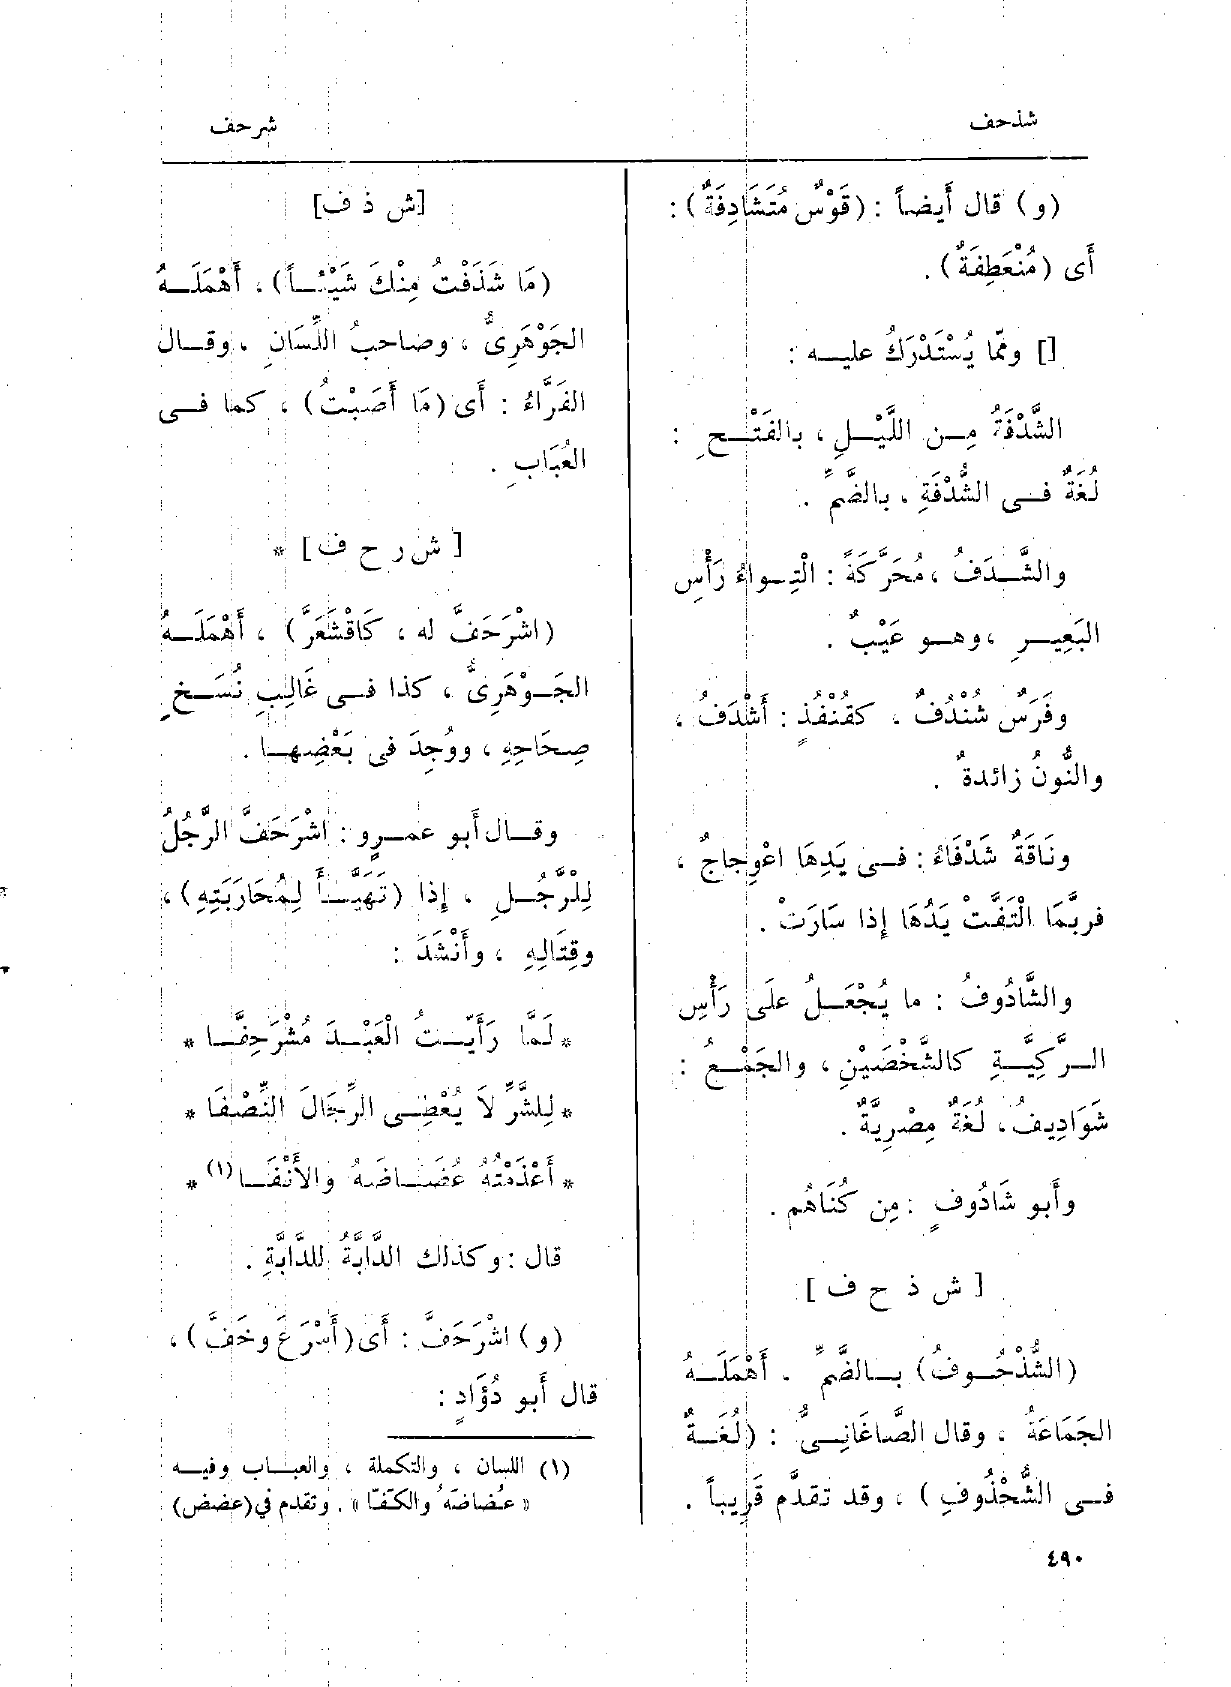 شذحف
شرحف
(و) قال أَيضاً : (قَوْسٌ مُتَشَادِفَةٌ) :
أَى (مُنْعَطِفَةٌ) .
[] وممّا يُسْتَدْرَكُ عليـه :
الشَّدْفَةُ مِـن اللَّيْـلِ ، بالفَتْـحِ :
لُغَةٌ فـى الشُّدْفَةِ ، بالضَّمِّ .
والشَّـدَفُ ، مُحَرَّكَةً : الْتِـواءُ رَأْسِ
البَعِيـرِ ، وهـو عَيْبٌ .
وفَرَسٌ شُنْدُفٌ ، كقُنْفُذٍ : أَشْدَفُ ،
والنُّونُ زائدةٌ .
ونَاقَةٌ شَدْفَاءُ : فـى يَدِهَا اعْوِجاجٌ ،
فربَّمَا الْتَفَّتْ يَدُهَا إذا سَارَتْ .
والشَّادُوفُ : ما يُجْعَـلُ علَى رَأْسِ
الـرَّكِيَّـةِ كالشَّخْصَيْنِ ، والجَمْـعُ :
شَوَادِيفُ ، لُغَةٌ مِصْرِيَّةٌ .
وأَبو شَادُوفٍ : مِن كُنَاهُم .
[ ش ذ ح ف ]
(الشُّذْحُـوفُ) بـالضَّمِّ . أَهْمَلَـهُ
الجَمَاعَةُ ، وقال الصَّاغَانِـىُّ : (لُغَـةٌ
فـى الشُّحْذُوفِ ) ، وقد تقدَّم قَرِيباً .
[ش ذ ف]
(مَا شَذَفْتُ مِنْكَ شَيْئـاً) ، أَهْمَلَـهُ
الجَوْهَرِىُّ ، وصاحبُ اللِّسَانِ ، وقـال
الفَرَّاءُ : أَى (مَا أَصَبْتُ) ، كما فـى
العُبَابِ .
[ ش ر ح ف ] *
(اشْرَحَفَّ له ، كَاقْشَعَرَّ) ، أَهْمَلَـهُ
الجَـوْهَرِىُّ ، كذا فـى غَالِبِ نُسَـخِ
صِحَاحِهِ ، ووُجِدَ فى بَعْضِهـا .
وقـال أَبو عمـرٍو : اشْرَحَفَّ الرَّجُلُ
لِلْرَّجُـلِ ، إذا (تَهَيَّـأَ لِمُحَارَبَتِهِ) ،
وقِتَالِهِ ، وأَنْشَدَ :
* لَمَّا رَأَيْـتُ الْعَبْـدَ مُشْرَحِفَّـا *
* لِلشَّرِّ لاَ يُعْطِـى الرِّجَالَ النِّصْفَا *
* أَعْذَمْتُهُ عُضَـاضَهُ والأَنْفَـا (١) *
قال : وكذلك الدَّابَّةُ للدَّابَّةِ .
(و) اشْرَحَفَّ : أَى (أَسْرَعَ وخَفَّ) ،
قال أَبو دُؤَادٍ :
(١) اللسان ، والتكملة ، والعبـاب وفيـه
« عُضاضَهُ والكَفّا » . وتقدم في (عضض)
٤٩٠